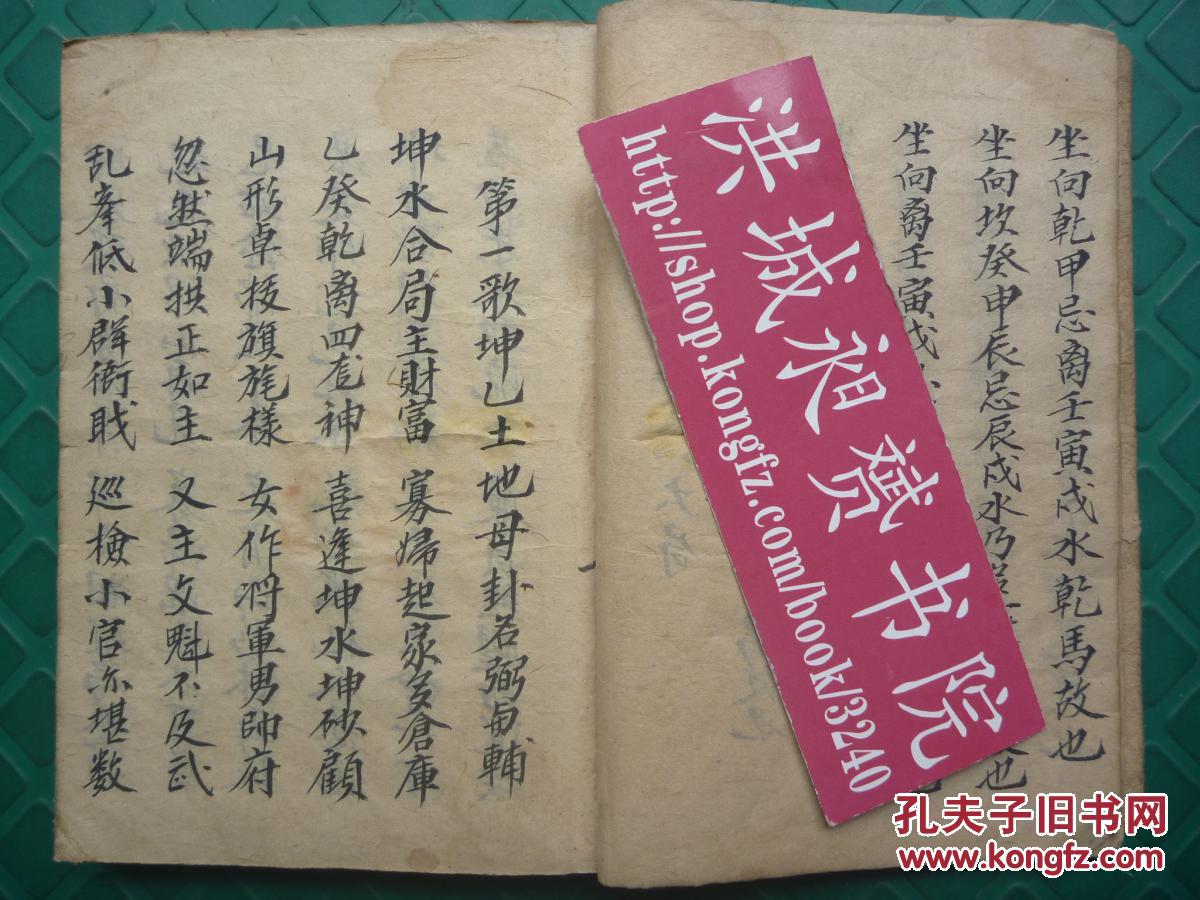 坐向乾甲忌离壬寅戍水乾馬故也
坐向坎癸申辰忌辰戍水乃
也
坐向离壬寅戍
洪城昶赟书院
http://shop.kongfz.com/book/3240
第一歌坤乙土地母卦名弼与輔
坤水合局主財富 寡婦起家多倉庫
乙癸乾离四 神 喜逢坤水坤砂顧
山形卓 旗旄樣 女作将軍男帥府
忽然端拱正如主 又主文魁不及武
乱峯低小群衙職 巡檢小官亦堪数
孔夫子旧书网
www.kongfz.com